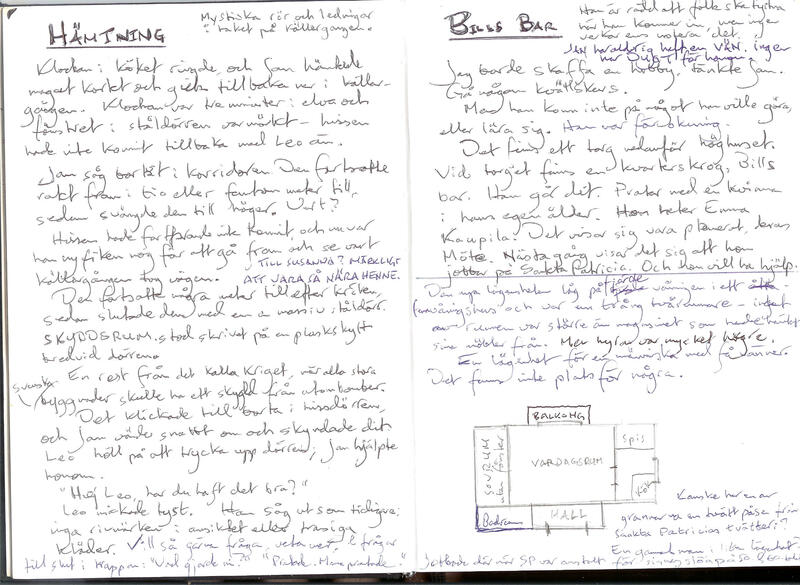 HÄMTNING
Mystiska rör och ledningar
i taket på källargången.
Klockan i köket ringde, och Jan hämtade
maget kortet och gick tillbaka ner i källar-
gången. Klockan var tre minuter i elva och
fönstret i ståldörren var mörkt – hissen
hade inte kommit tillbaka med Leo än.
Jan såg bortåt i korridoren. Den fortsatte
rakt fram i tio eller femton meter till,
sedan svängde den till höger. Vart?
Hissen hade fortfarande inte kommit, och nu var
han nyfiken nog för att gå fram och se vart
källargången tog vägen.
TILL SUSANNA? MÄRKLIGT
ATT VARA SÅ NÄRA HENNE.
Den fortsatte några meter till efter kröken,
sedan slutade den med en massiv ståldörr.
SKYDDSRUM stod skrivet på en plastskylt
bredvid dörren.
En rest från det kalla kriget, när alla stora
svenska
byggnader skulle ha ett skydd från atombomber.
Det klickade till borta i hissdörren,
och Jan vände snabbt om och skyndade dit.
Leo höll på att trycka upp dörren, Jan hjälpte
honom.
"Hej Leo, har du haft det bra?"
Leo nickade tyst. Han såg ut som tidigare;
inga rivmärken i ansiktet eller trasiga
kläder. Vill så gärna fråga, veta mer, & frågar
till slut i trappan: "Vad gjorde ni?" "Pratade. Han pratade..."
BILLS BAR
Han är rädd att folk ska tystna
när han kommer in, men ingen
verkar ens notera det.
JAN har aldrig haft en VÄN. Ingen
har DUGT för honom.
Jag borde skaffa en hobby, tänkte Jan.
Gå någon kvällskurs.
Men han kom inte på något han ville göra,
eller lära sig. Han var för ung.
Det finns ett torg nedanför höghuset.
Vid torget finns en kvarterskrog, Bills
bar. Han går dit. Pratar med en kvinna
i hans egen ålder. Hon heter Emma
Kaupila. Det visar sig vara planerat, deras
Möte. Nästa gång visar det sig att hon
jobbar på Sankta Patricia. Och hon vill ha hjälp.
Den nya lägenheten låg på fjärde våningen i ett
hus och var en trång tvårummare – inget
av rummen var större än magasinet som hade hämtat
sina möbler från. Men hyran var mycket högre.
En lägenhet för en människa med få vänner.
Det fanns inte plats för några.
BALKONG
SOVRUM
utan fönster
VARDAGSRUM
Spis
Kök
Badrum
HALL
Kanske har en av
grannarna en tvättpåse från
Sankta Patricias tvätteri?
En gammal man i lite lägenhet